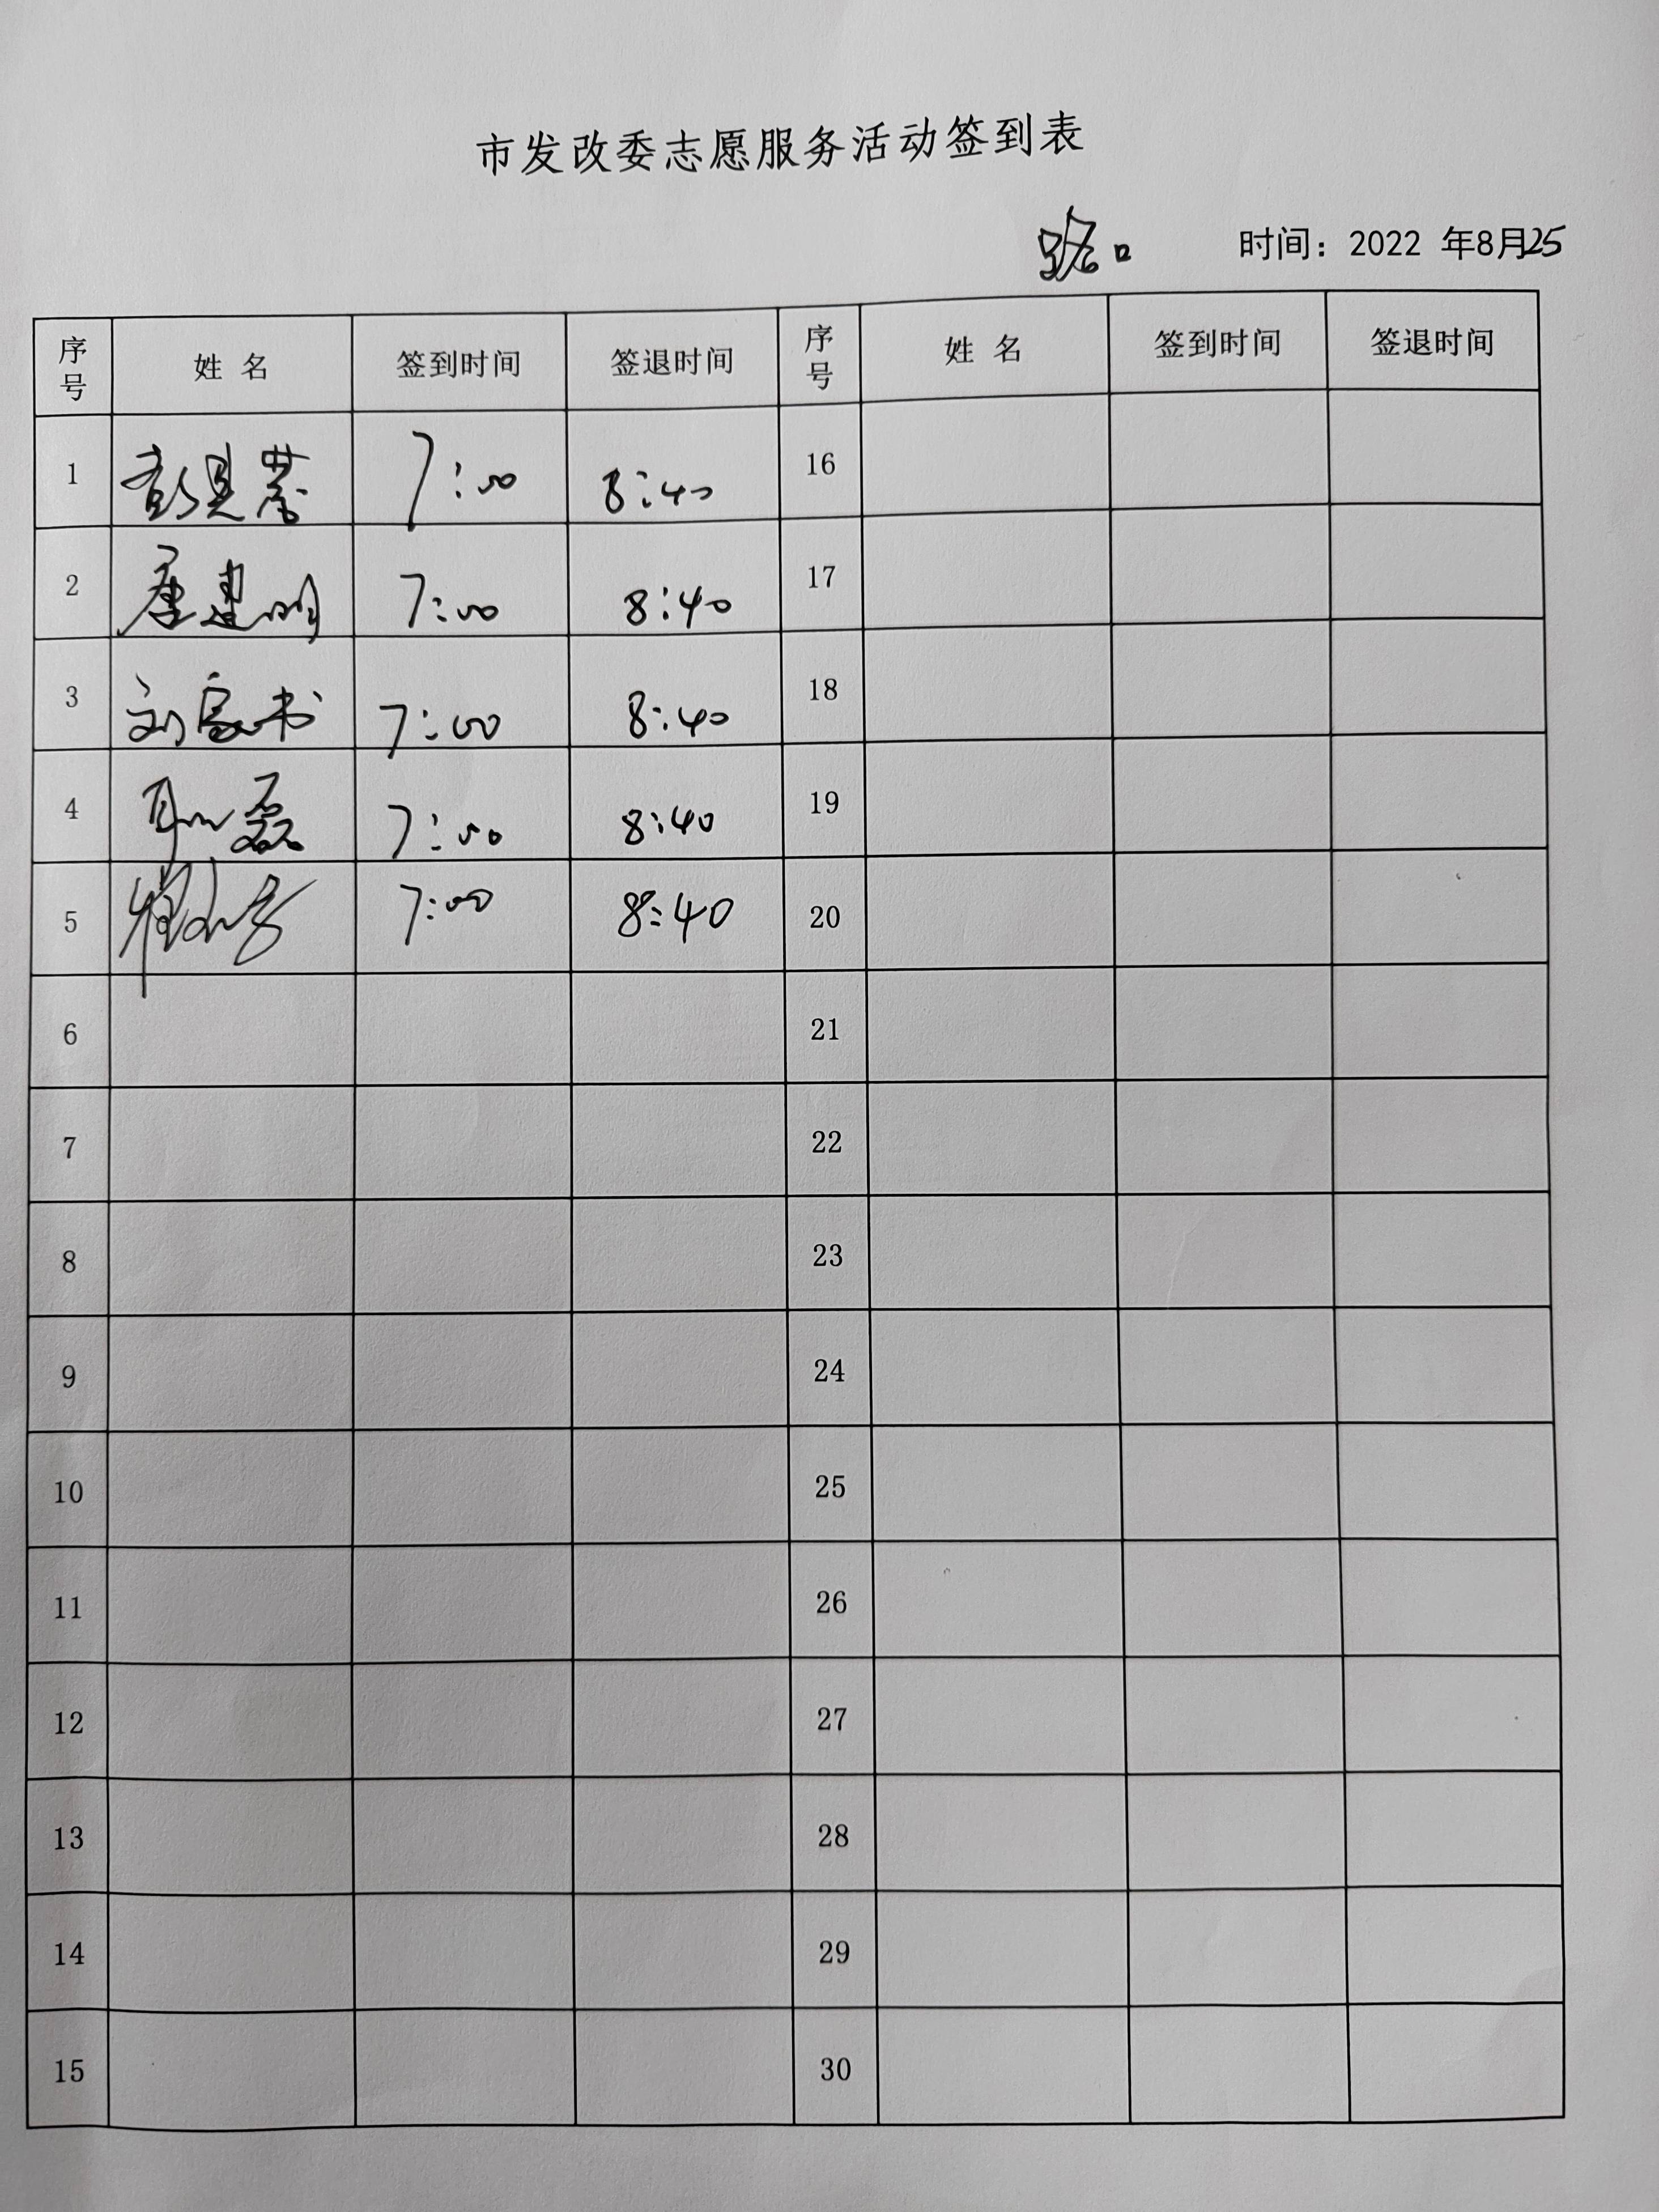 市发改委志愿服务活动签到表
路口 时间：2022 年8月25
序号 姓 名 签到时间 签退时间 序号 姓 名 签到时间 签退时间
1 7:00 8:40 16
2 唐建明 7:00 8:40 17
3 刘家书 7:00 8:40 18
4 磊 7:00 8:40 19
5 7:00 8:40 20
6 21
7 22
8 23
9 24
10 25
11 26
12 27
13 28
14 29
15 30